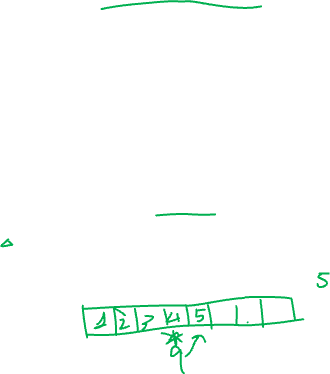 5
1 2 3 4 5
9